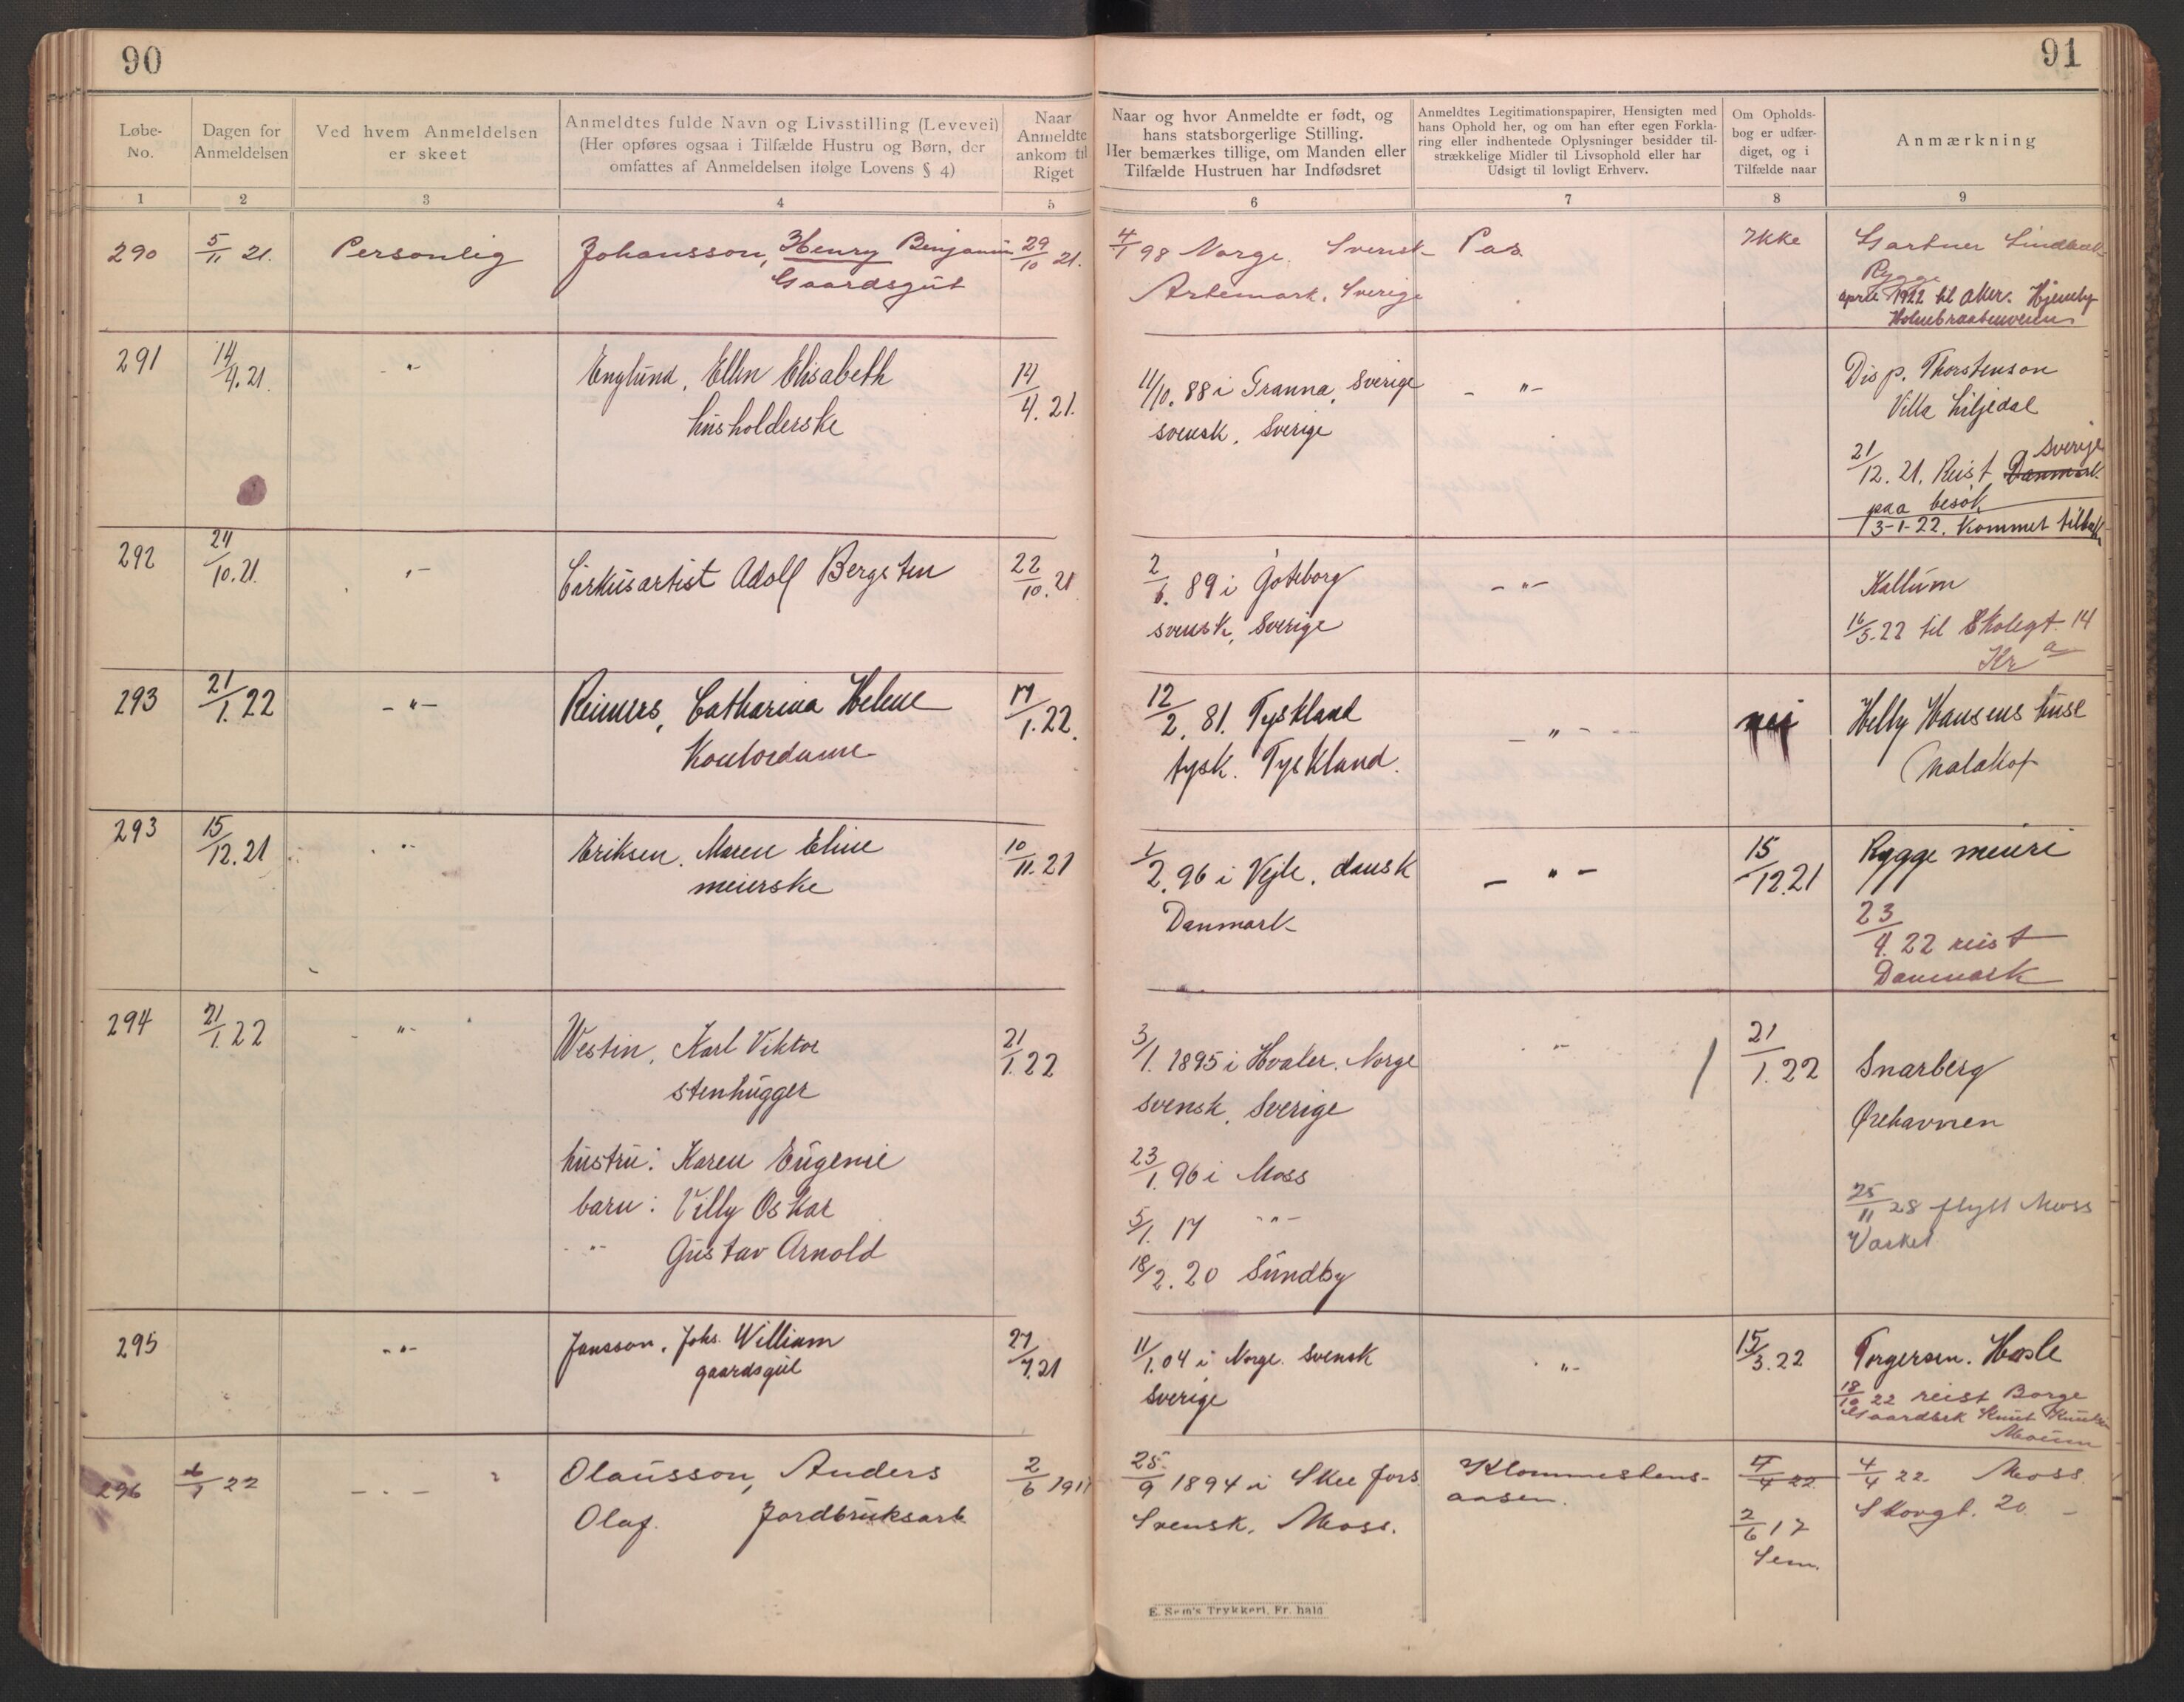 90
Løbe-
No.
Dagen for
Anmeldelsen
Ved hvem Anmeldelsen
er skeet
Anmeldtes fulde Navn og Livsstilling (Levevei)
(Her opføres ogsaa i Tilfælde Hustru og Børn, der
omfattes af Anmeldelsen ifølge Lovens § 4)
Naar
Anmeldte
ankom til
Riget
1 2 3 4 5
290 5/11 21. Personlig Johansson, Henry Benjamin 29/10 21.
Gaardsgut
291 14/4. 21. - " - Englund, Ellen Elisabeth 14/4. 21.
husholderske
292 24/10. 21. " - Cirkusartist Adolf Bergsten 22/10. 21
293 21/1. 22 - " - Reimers, Catharina Helene 17/1. 22.
Kontordame
293 15/12. 21 - " - Eriksen. Maren Eline 10/11. 21
meierske
294 21/1. 22 - " - Westin, Karl Viktor 21/1. 22
stenhugger
hustru: Karen Eugenie
barn: Villy Oskar
- " - Gustav Arnold
295 - " - Jansson, Johs. William 27/7. 21
gaardsgut
296 22 - " - Olausson, Anders 2/6 1917
Olaf. Jordbruksarb
91
Naar og hvor Anmeldte er født, og
hans statsborgerlige Stilling.
Her bemærkes tillige, om Manden eller
Tilfælde Hustruen har Indfødsret
Anmeldtes Legitimationspapirer, Hensigten med
hans Ophold her, og om han efter egen Forkla-
ring eller indhentede Oplysninger besidder til-
strækkelige Midler til Livsophold eller har
Udsigt til lovligt Erhverv.
Om Opholds-
bog er udfær-
diget, og i
Tilfælde naar
Anmærkning
6 7 8 9
4/1 98 Norge. Svensk Pas Ikke Gartner Lindbæk
Artemark. Sverige Rygge
april 1922 til Aker.
11/10. 88 i Granna, Sverige - " - Disp. Thorstenson
svensk, Sverige Villa Liljedal
21/12. 21. Reist Danmark Sverige
paa besøk
13-1-22. Kommet tilbake
2/6. 89 i Göteborg - " - Kallum
svensk, Sverige 16/5. 22 til Skolegt. 14
Kra
12/2. 81. Tyskland - " - nei Helly Hansens huse
tysk. Tyskland. Malakof
1/2. 96 i Vejle. dansk - " - 15/12. 21 Rygge meieri
Danmark 23/4. 22 reist
Danmark
3/1. 1895 i Hvaler. Norge - " - 21/1. 22 Snarberg
svensk, Sverige Ørehavnen
23/1. 96 i Moss
5/1. 17 - " - 25/11 28 flytt Moss
18/2. 20 Sundby
11/1. 04 i Norge. Svensk - " - 15/3. 22 Torgersen. Hasle
Sverige 18/10 22 reist Borge
Gaardbrk Knut Knutsen
Moum
25/9 1894 i Skee fors. Klommestens- 4/4 22 4/4 22. Moss.
Svensk. Moss. aasen. 2/6 17 Skovgt. 20. -
Sem.
E. Sem's Trykkeri, Fr. hald